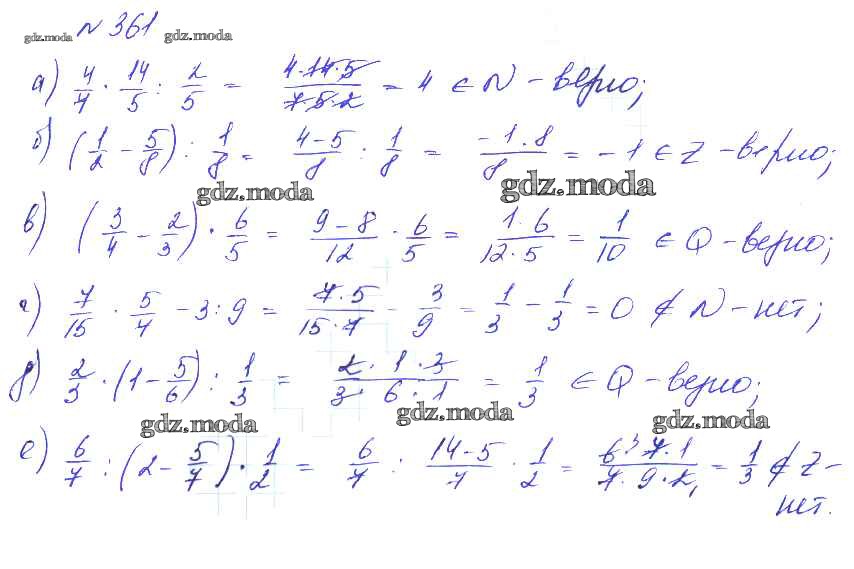 gdz.moda № 361 gdz.moda
а) 4/7 · 14/5 : 2/5 = 4·14·5/7·5·2 = 4 ∈ N - верно;
б) (1/2 - 5/8) : 1/8 = 4-5/8 : 1/8 = -1·8/8 = -1 ∈ Z - верно;
gdz.moda gdz.moda
в) (3/4 - 2/3) · 6/5 = 9-8/12 · 6/5 = 1·6/12·5 = 1/10 ∈ Q - верно;
г) 7/15 · 5/4 - 3:9 = 7·5/15·7 - 3/9 = 1/3 - 1/3 = 0 ∉ N - нет;
д) 2/3 · (1 - 5/6) : 1/3 = 2·1·3/3·6·1 = 1/3 ∈ Q - верно;
gdz.moda gdz.moda gdz.moda
е) 6/7 : (2 - 5/7) · 1/2 = 6/7 : 14-5/7 · 1/2 = 6³·7·1/7·9·2₁ = 1/3 ∉ Z -
нет.